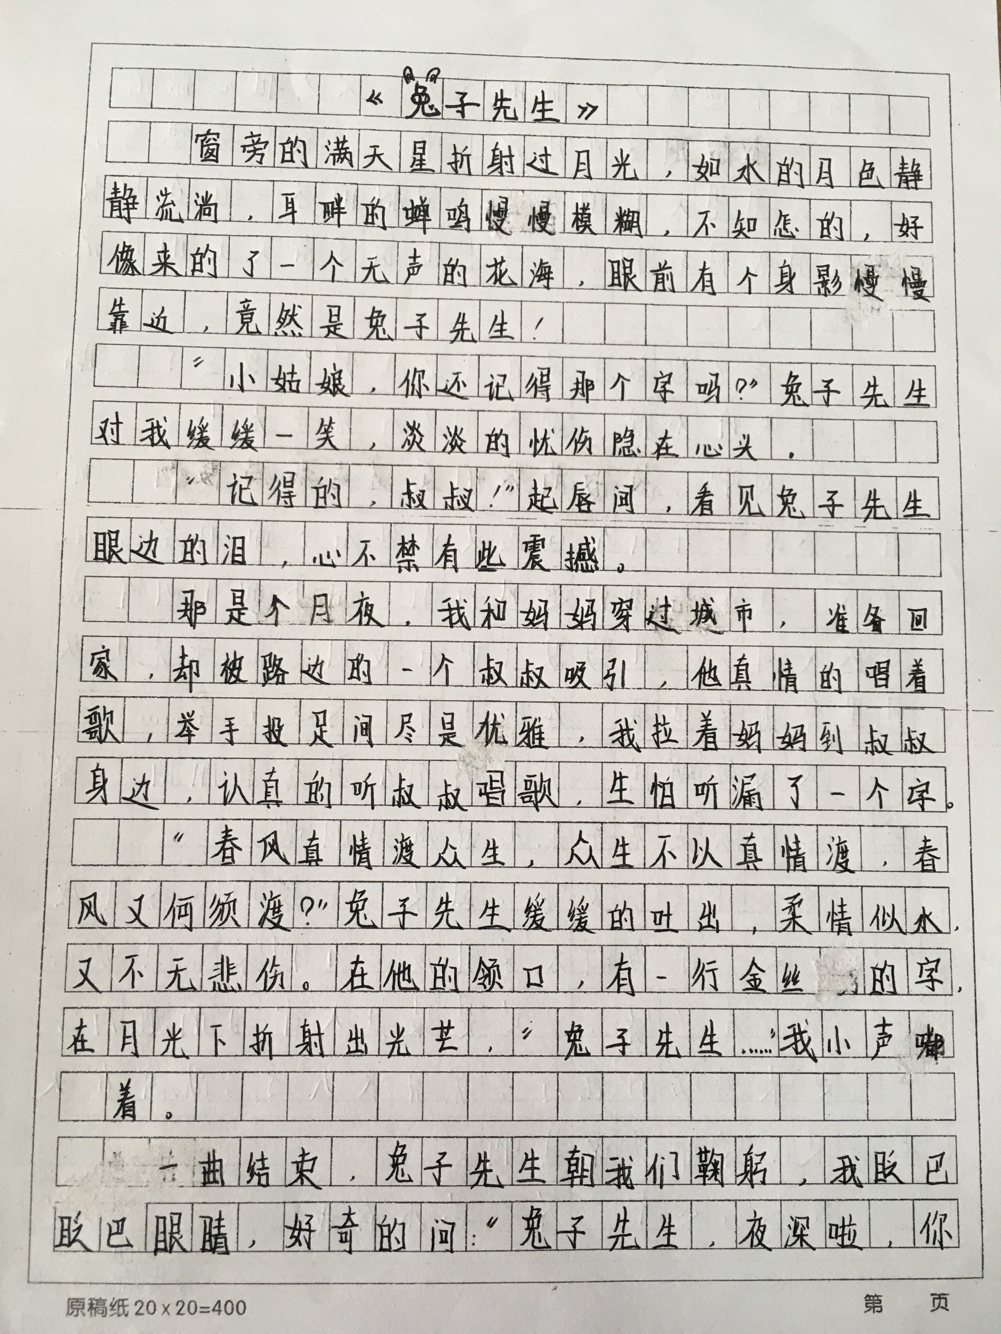 《兔子先生》
窗旁的满天星折射过月光，如水的月色静
静流淌，耳畔的蝉鸣慢慢模糊，不知怎的，好
像来的了一个无声的花海，眼前有个身影慢慢
靠近，竟然是兔子先生！
“小姑娘，你还记得那个字吗？”兔子先生
对我缓缓一笑，淡淡的忧伤隐在心头。
“记得的，叔叔！”起唇间，看见兔子先生
眼边的泪，心不禁有些震撼。
那是个月夜，我和妈妈穿过城市，准备回
家，却被路边的一个叔叔吸引，他真情的唱着
歌，举手投足间尽是优雅，我拉着妈妈到叔叔
身边，认真的听叔叔唱歌，生怕听漏了一个字。
“春风真情渡众生，众生不以真情渡，春
风又何须渡？”兔子先生缓缓的吐出，柔情似水，
又不无悲伤。在他的领口，有一行金丝的字，
在月光下折射出光芒，“兔子先生……”我小声嘟
着。
一曲结束，兔子先生朝我们鞠躬，我眨巴
眨巴眼睛，好奇的问：“兔子先生，夜深啦，你
原稿纸20×20=400
第 页